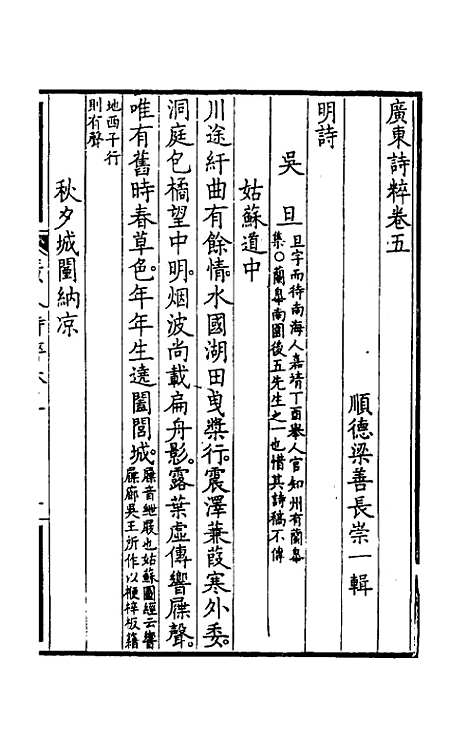 廣東詩粹卷五
順德梁善長崇一輯
明詩
吳旦
旦字而待南海人嘉靖丁酉舉人官知州有蘭皋
集〇蘭皋南園後五先生之一也惜其詩稿不傳
姑蘇道中
川途紆曲有餘情。水國湖田曳槳行。震澤蒹葭寒外委。
洞庭包橘望中明。烟波尚載扁舟影。露葉虛傳響屧聲。
唯有舊時春草色。年年生遶闔閭城。
屧音紲屐也姑蘇圖經云響
屧廊吳王所作以楩梓板籍
地西子行
則有聲
秋夕城闉納凉